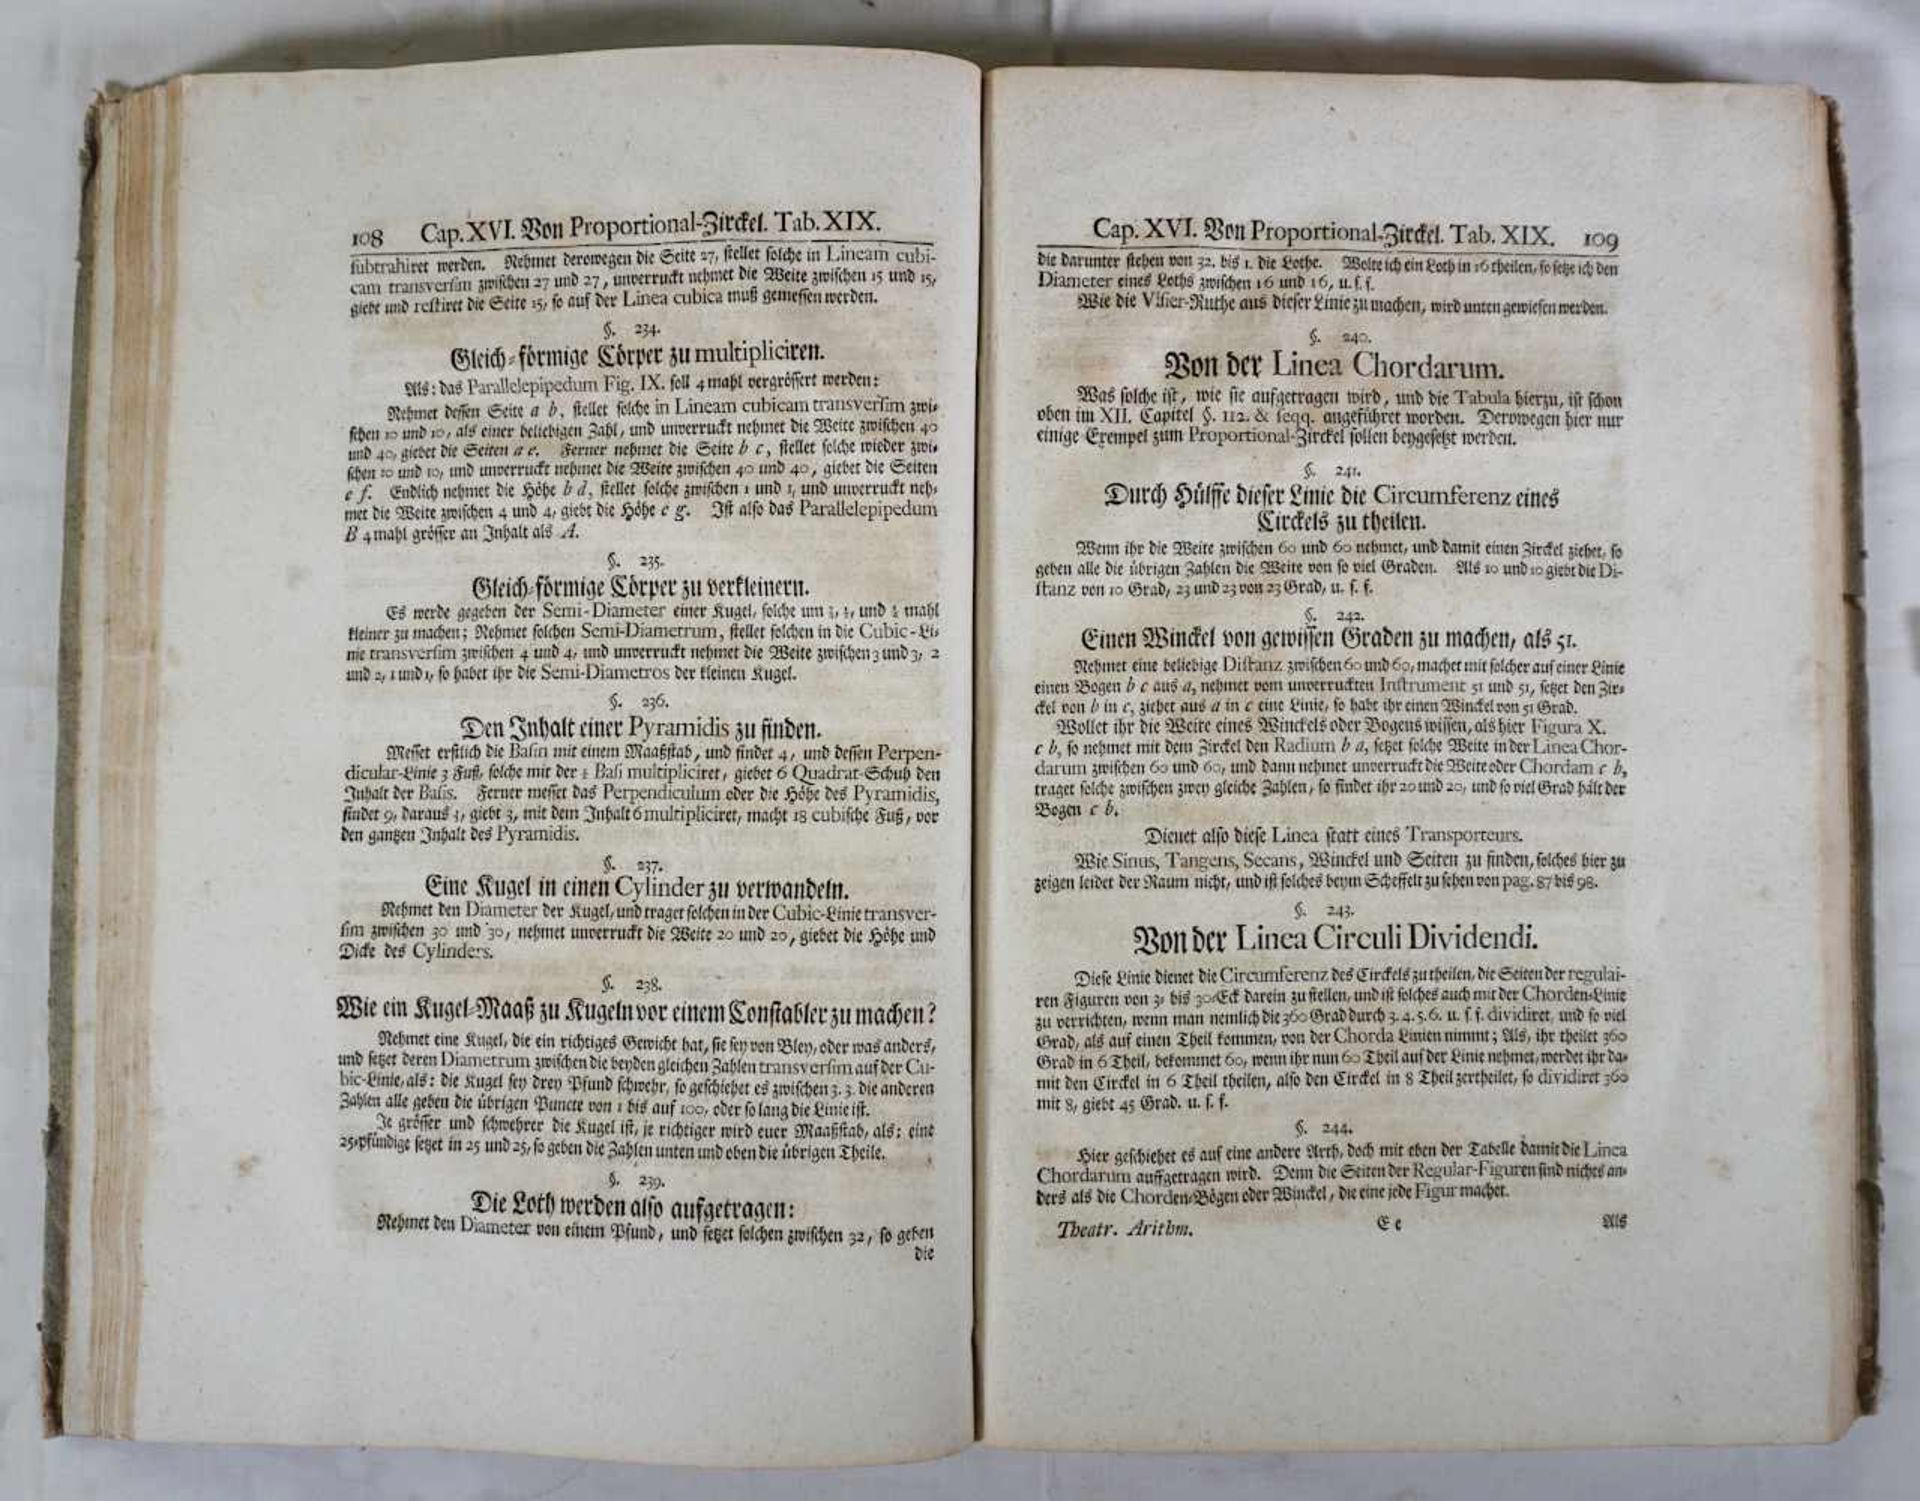 108 Cap. XVI. Von Proportional-Zirckel. Tab. XIX.
subtrahiret werden. Nehmet derowegen die Seite 27, stellet solche in Lineam cubi-
cam transversim zwischen 27 und 27, unverruckt nehmet die Weite zwischen 15 und 15,
giebt und restiret die Seite 15, so auf der Linea cubica muß gemessen werden.
§. 234.
Gleich-förmige Cörper zu multipliciren.
Als: das Parallelepipedum Fig. IX. soll 4 mahl vergrössert werden:
Nehmet dessen Seite a b, stellet solche in Lineam cubicam transversim zwi-
schen 10 und 10, als einer beliebigen Zahl, und unverruckt nehmet die Weite zwischen 40
und 40, giebet die Seiten a e. Ferner nehmet die Seite b c, stellet solche wieder zwi-
schen 10 und 10, und unverruckt nehmet die Weite zwischen 40 und 40, giebet die Seiten
e f. Endlich nehmet die Höhe b d, stellet solche zwischen 1 und 1, und unverruckt neh-
met die Weite zwischen 4 und 4, giebt die Höhe e g. Ist also das Parallelepipedum
B 4 mahl grösser an Inhalt als A.
§. 235.
Gleich-förmige Cörper zu verkleinern.
Es werde gegeben der Semi-Diameter einer Kugel, solche um und mahl
kleiner zu machen; Nehmet solchen Semi-Diametrum, stellet solchen in die Cubic-Li-
nie transversim zwischen 4 und 4, und unverruckt nehmet die Weite zwischen 3 und 3, 2
und 2, 1 und 1, so habet ihr die Semi-Diametros der kleinen Kugel.
§. 236.
Den Inhalt einer Pyramidis zu finden.
Messet erstlich die Basin mit einem Maaßstab, und findet 4, und dessen Perpen-
dicular-Linie 3 Fuß, solche mit der ½ Basi multipliciret, giebet 6 Quadrat-Schuh den
Inhalt der Basis. Ferner messet das Perpendiculum oder die Höhe des Pyramidis,
findet 9, daraus ⅓, giebt 3, mit dem Inhalt 6 multipliciret, macht 18 cubische Fuß, vor
den gantzen Inhalt des Pyramidis.
§. 237.
Eine Kugel in einen Cylinder zu verwandeln.
Nehmet den Diameter der Kugel, und traget solchen in der Cubic-Linie transver-
sim zwischen 30 und 30, nehmet unverruckt die Weite 20 und 20, giebet die Höhe und
Dicke des Cylinders.
§. 238.
Wie ein Kugel-Maaß zu Kugeln vor einem Constabler zu machen?
Nehmet eine Kugel, die ein richtiges Gewicht hat, sie sey von Bley, oder was anders,
und setzet deren Diametrum zwischen die beyden gleichen Zahlen transversim auf der Cu-
bic-Linie, als: die Kugel sey drey Pfund schwehr, so geschiehet es zwischen 3. 3. die anderen
Zahlen alle geben die übrigen Puncte von 1 bis auf 100, oder so lang die Linie ist.
Je grösser und schwehrer die Kugel ist, je richtiger wird euer Maaßstab, als: eine
25-pfündige setzet in 25 und 25, so geben die Zahlen unten und oben die übrigen Theile.
§. 239.
Die Loth werden also aufgetragen:
Nehmet den Diameter von einem Pfund, und setzet solchen zwischen 32, so geben
die
Cap. XVI. Von Proportional-Zirckel. Tab. XIX. 109
die darunter stehen von 32. bis 1. die Lothe. Wolte ich ein Loth in 16 theilen, so setze ich den
Diameter eines Loths zwischen 16 und 16, u. s. f.
Wie die Visier-Ruthe aus dieser Linie zu machen, wird unten gewiesen werden.
§. 240.
Von der Linea Chordarum.
Was solche ist, wie sie aufgetragen wird, und die Tabula hierzu, ist schon
oben im XII. Capitel §. 112. & seqq. angeführet worden. Derowegen hier nur
einige Exempel zum Proportional-Zirckel sollen beygesetzt werden.
§. 241.
Durch Hülffe dieser Linie die Circumferenz eines
Circkels zu theilen.
Wenn ihr die Weite zwischen 60 und 60 nehmet, und damit einen Zirckel ziehet, so
geben alle die übrigen Zahlen die Weite von so viel Graden. Als 10 und 10 giebt die Di-
stanz von 10 Grad, 23 und 23 von 23 Grad, u. s. f.
§. 242.
Einen Winckel von gewissen Graden zu machen, als 51.
Nehmet eine beliebige Distanz zwischen 60 und 60, machet mit solcher auf einer Linie
einen Bogen b c aus a, nehmet vom unverruckten Instrument 51 und 51, setzet den Zir-
ckel von b in c, ziehet aus a in c eine Linie, so habt ihr einen Winckel von 51 Grad.
Wollet ihr die Weite eines Winckels oder Bogens wissen, als hier Figura X.
c b, so nehmet mit dem Zirckel den Radium b a, setzet solche Weite in der Linea Chor-
darum zwischen 60 und 60, und dann nehmet unverruckt die Weite oder Chordam c b,
traget solche zwischen zwey gleiche Zahlen, so findet ihr 20 und 20, und so viel Grad hält der
Bogen c b.
Dienet also diese Linea statt eines Transporteurs.
Wie Sinus, Tangens, Secans, Winckel und Seiten zu finden, solches hier zu
zeigen leidet der Raum nicht, und ist solches beym Scheffelt zu sehen von pag. 87 bis 98.
§. 243.
Von der Linea Circuli Dividendi.
Diese Linie dienet die Circumferenz des Circkels zu theilen, die Seiten der regulai-
ren Figuren von 3- bis 30-Eck darein zu stellen, und ist solches auch mit der Chorden-Linie
zu verrichten, wenn man nemlich die 360 Grad durch 3. 4. 5. 6. u. s. f. dividiret, und so viel
Grad, als auf einen Theil kommen, von der Chorda Linien nimmt; Als, ihr theilet 360
Grad in 6 Theil, bekommet 60, wenn ihr nun 60 Theil auf der Linie nehmet, werdet ihr da-
mit den Circkel in 6 Theil theilen, also den Circkel in 8 Theil zertheilet, so dividiret 360
mit 8, giebt 45 Grad. u. s. f.
§. 244.
Hier geschiehet es auf eine andere Arth, doch mit eben der Tabelle damit die Linea
Chordarum auffgetragen wird. Denn die Seiten der Regular-Figuren sind nichts an-
ders als die Chorden-Bögen oder Winckel, die eine jede Figur machet.
Theatr. Arithm. E e Als